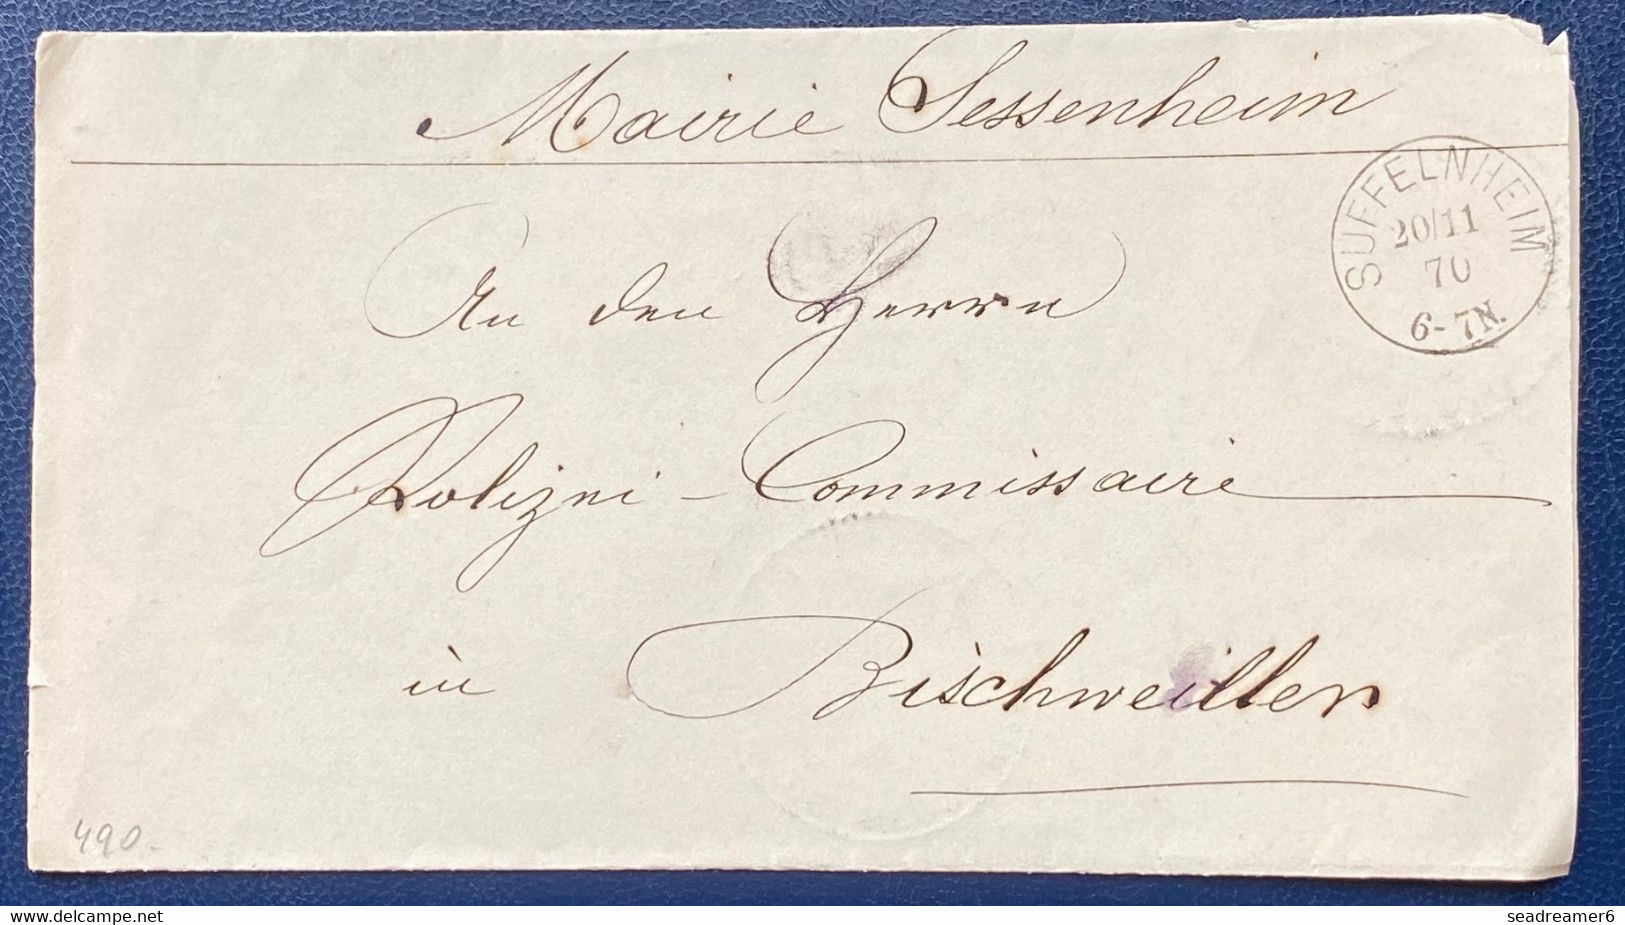 Mairie Sessenheim
SUFFELNHEIM
20/11
70
6-7N.
An den Herrn
Polizei-Commissaire
in Bischweiller
490.-
seadreamer6